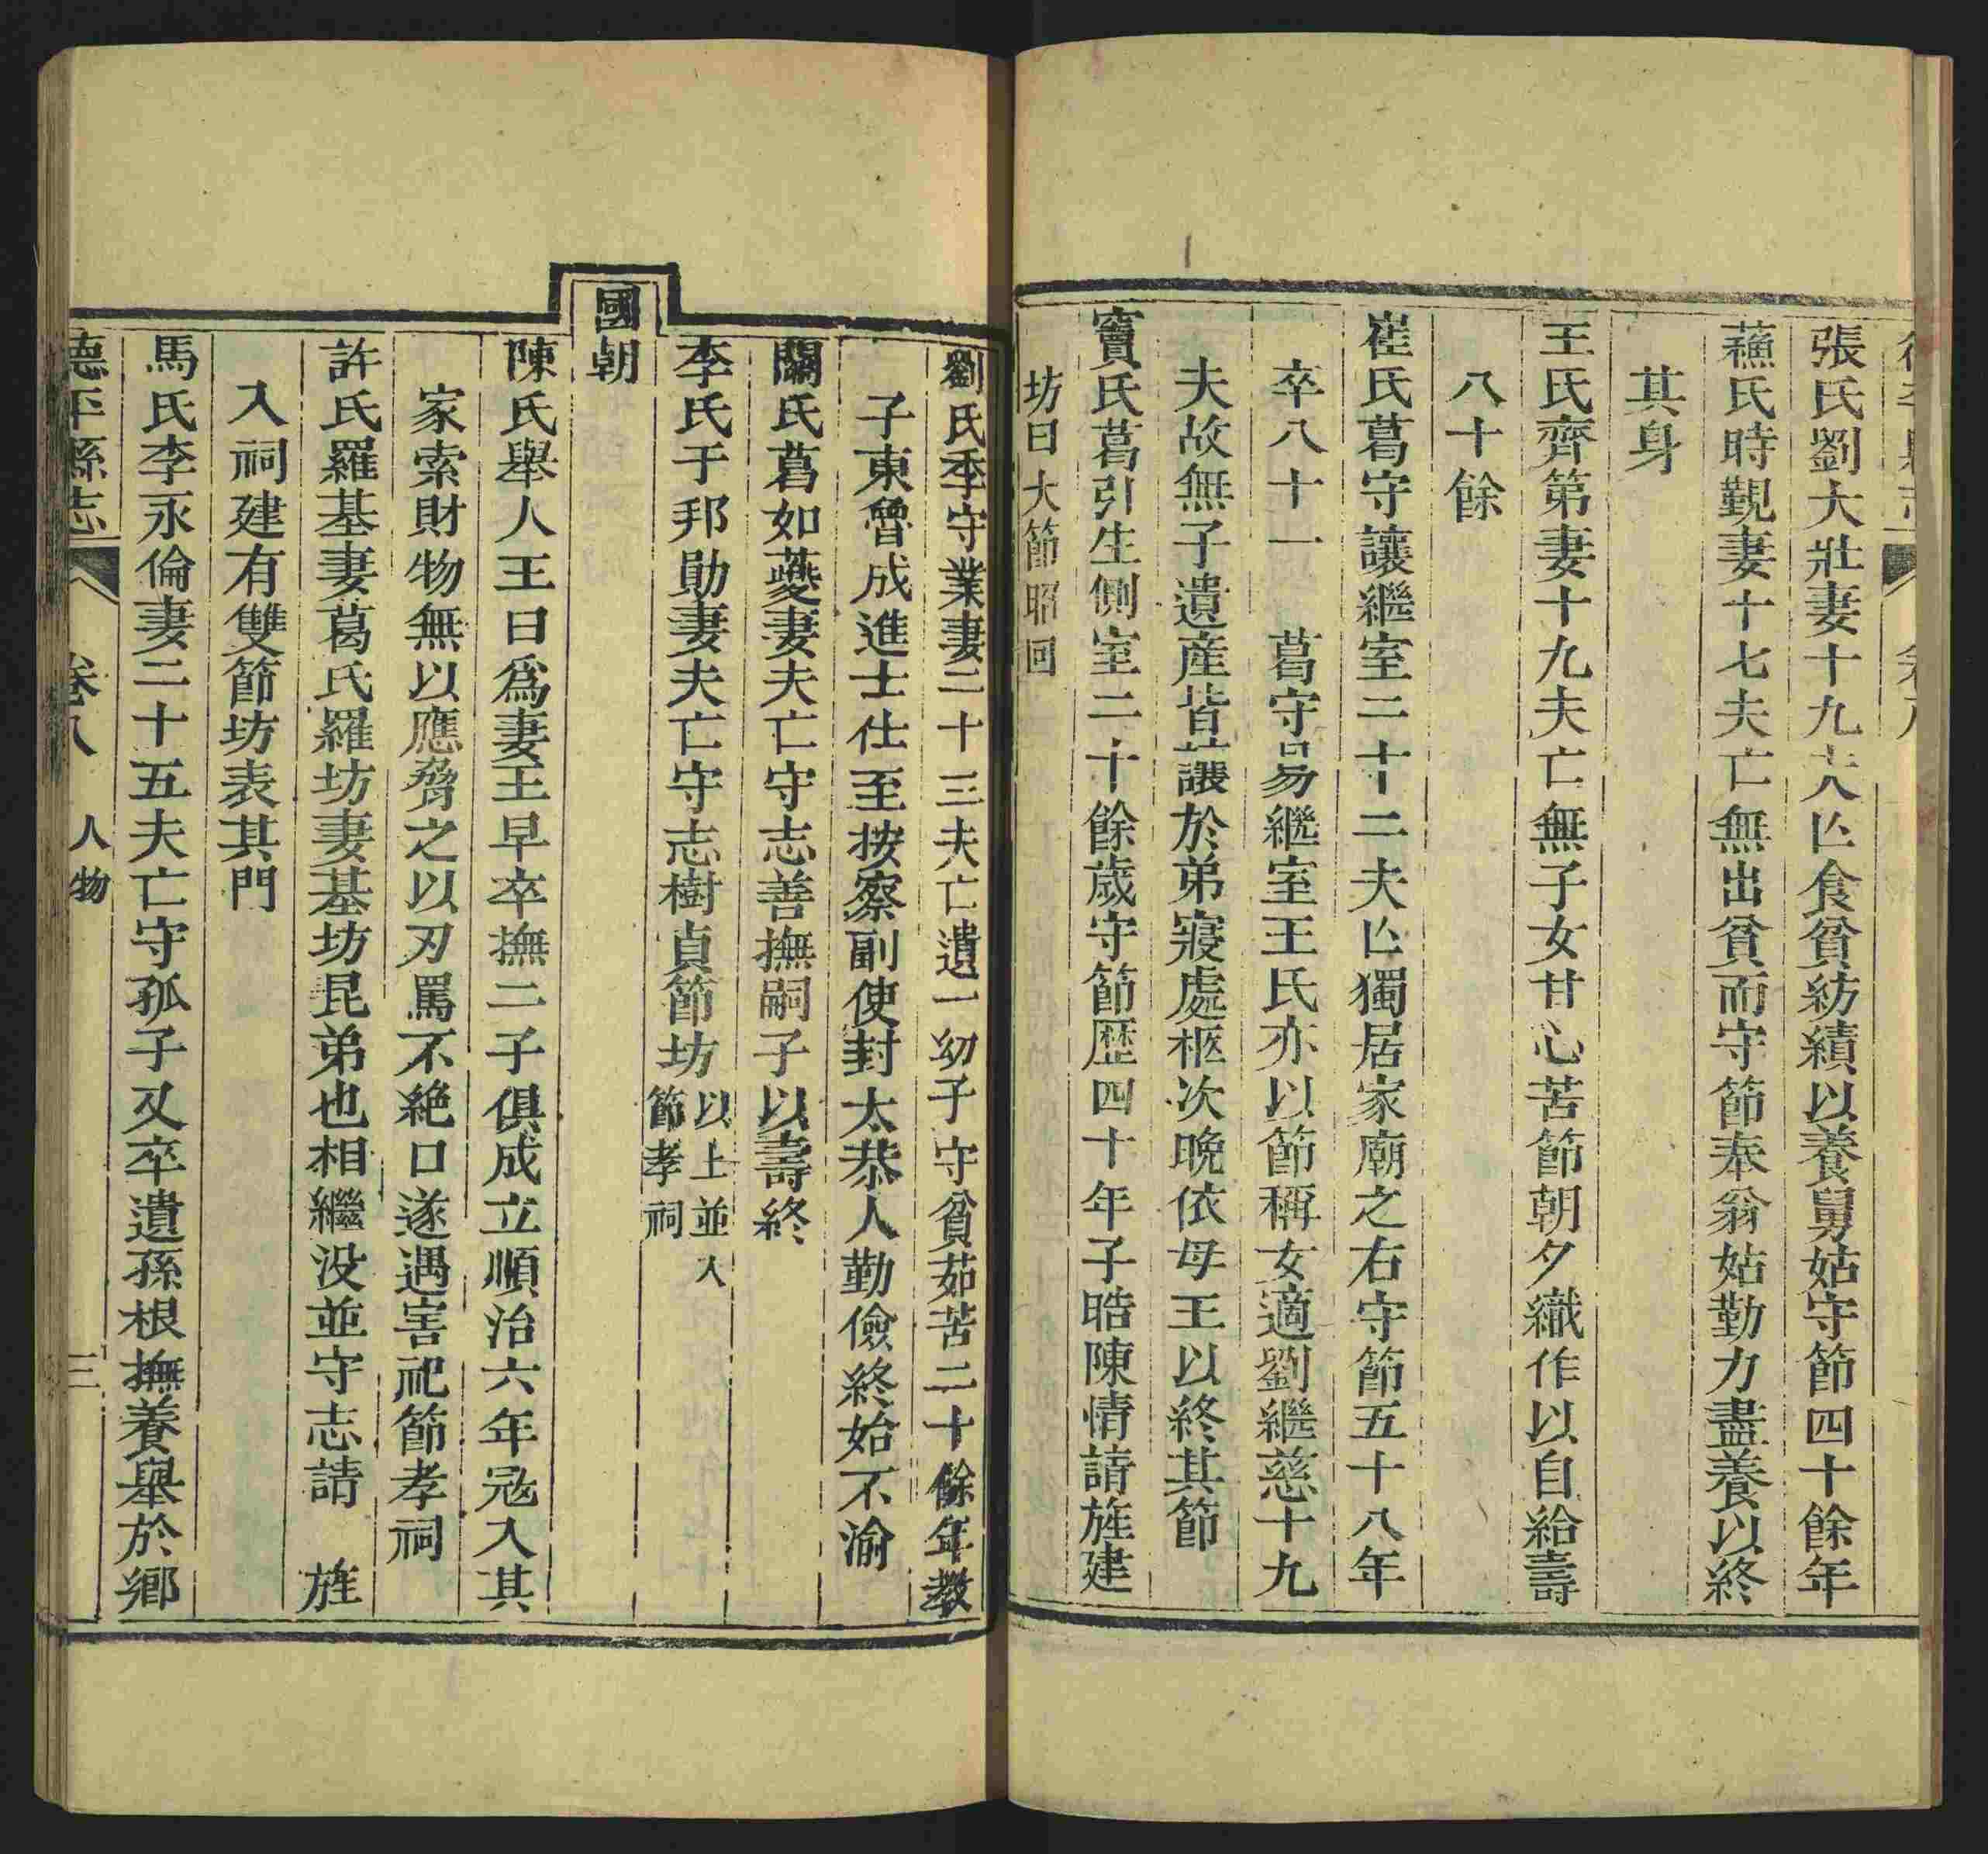 張氏劉大壯妻十九夫亾食貧紡績以養舅姑守節四十餘年
蘓氏時觐妻十七夫亡無出貧而守節奉翁姑勤力盡養以終
其身
王氏齊第妻十九夫亡無子女甘心苦節朝夕織作以自給壽
八十餘
崔氏葛守讓繼室二十二夫亾獨居家廟之右守節五十八年
卒八十一　葛守易繼室王氏亦以節稱女適劉繼慈十九
夫故無子遺産皆讓於弟寢處柩次晚依母王以終其節
竇氏葛引生側室二十餘歲守節歷四十年子晧陳情請旌建
坊曰大節昭回
劉氏季守業妻二十三夫亡遺一幼子守貧茹苦二十餘年教
子東魯成進士仕至按察副使封太恭人勤儉終始不渝
關氏葛如夔妻夫亡守志善撫嗣子以壽終
李氏于邦勛妻夫亡守志樹貞節坊以上並入
節孝祠
國朝
陳氏舉人王曰爲妻王早卒撫二子俱成立順治六年冦入其
家索財物無以應脅之以刃罵不絶口遂遇害祀節孝祠
許氏羅基妻葛氏羅坊妻基坊昆弟也相繼没並守志請　旌
入祠建有雙節坊表其門
馬氏李永倫妻二十五夫亡守孤子又卒遺孫根撫養舉於鄉
德平縣志　卷八　人物　三